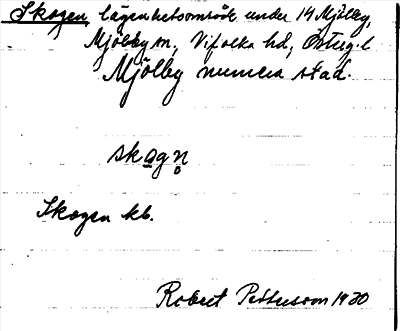 Skogen, lägenhetsområde under 14 Mjölby,
Mjölby sn, Vifolka hd, Östergl
Mjölby numera stad.
skogn̥
Skogen kb.
Robert Pettersson 1930